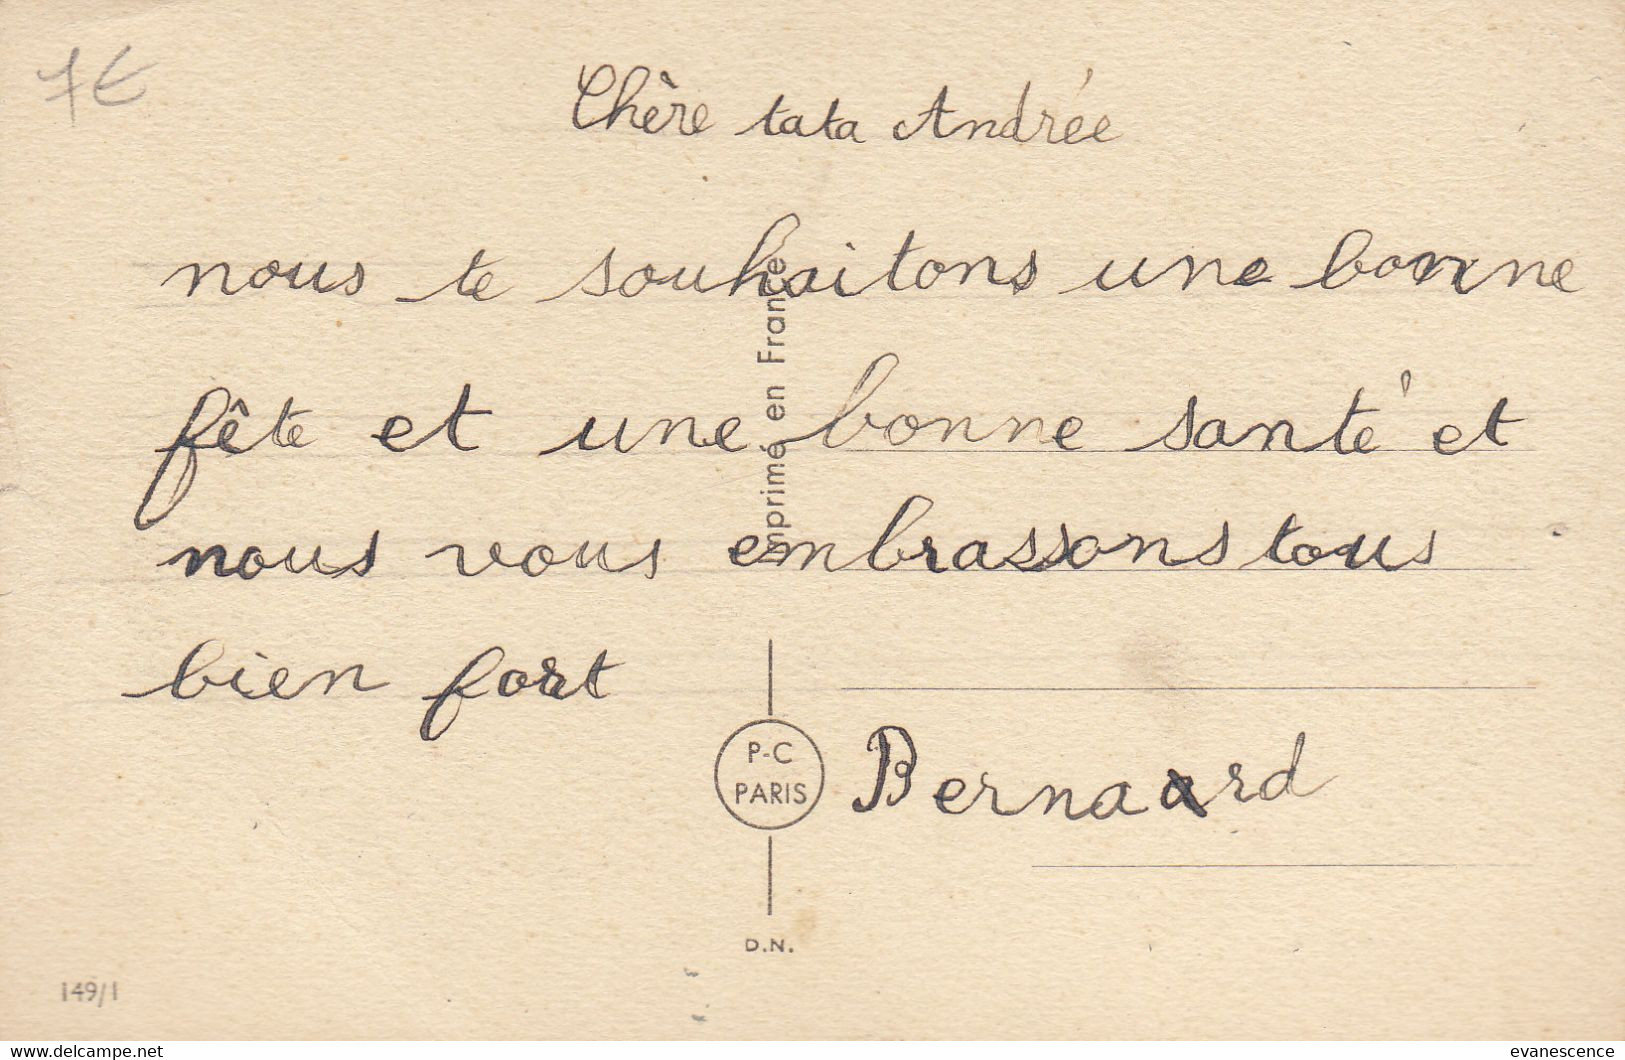 7€
Chère tata Andrée
nous te souhaitons une bonne
fête et une bonne santé et
nous vous embrassons tous
bien fort
Bernard
Imprimé en France
P-C
PARIS
D.N.
149/1
www.delcampe.net
evanescence